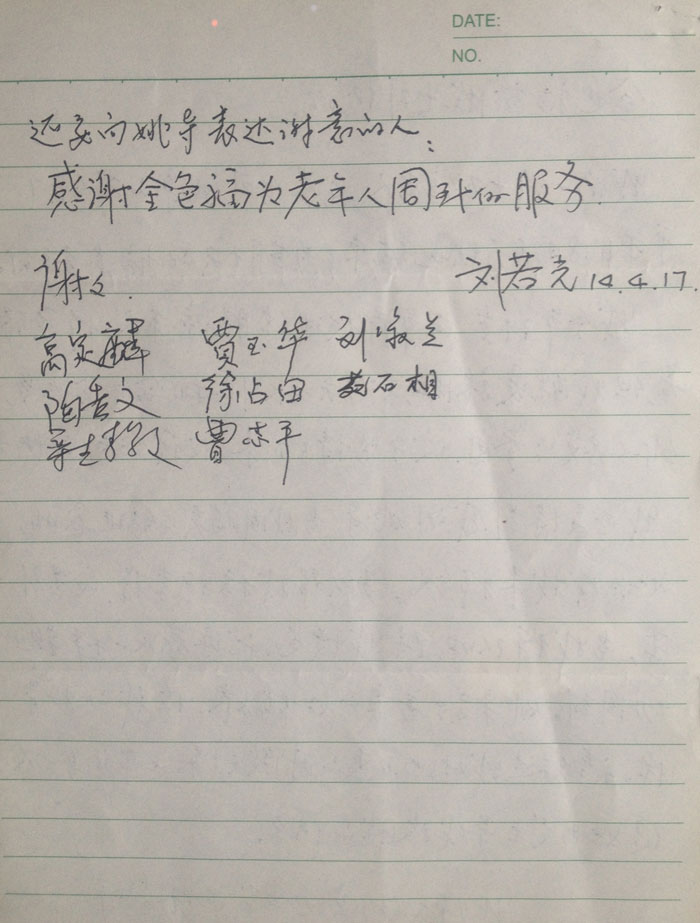 DATE:
NO.
还要向姚导表达谢意的人:
感谢金色福为老年人周到的服务.
谢谢. 刘若光 14.4.17.
高定麟 贾玉华 刘淑兰
陶秀文 徐占田 石相
贾志平